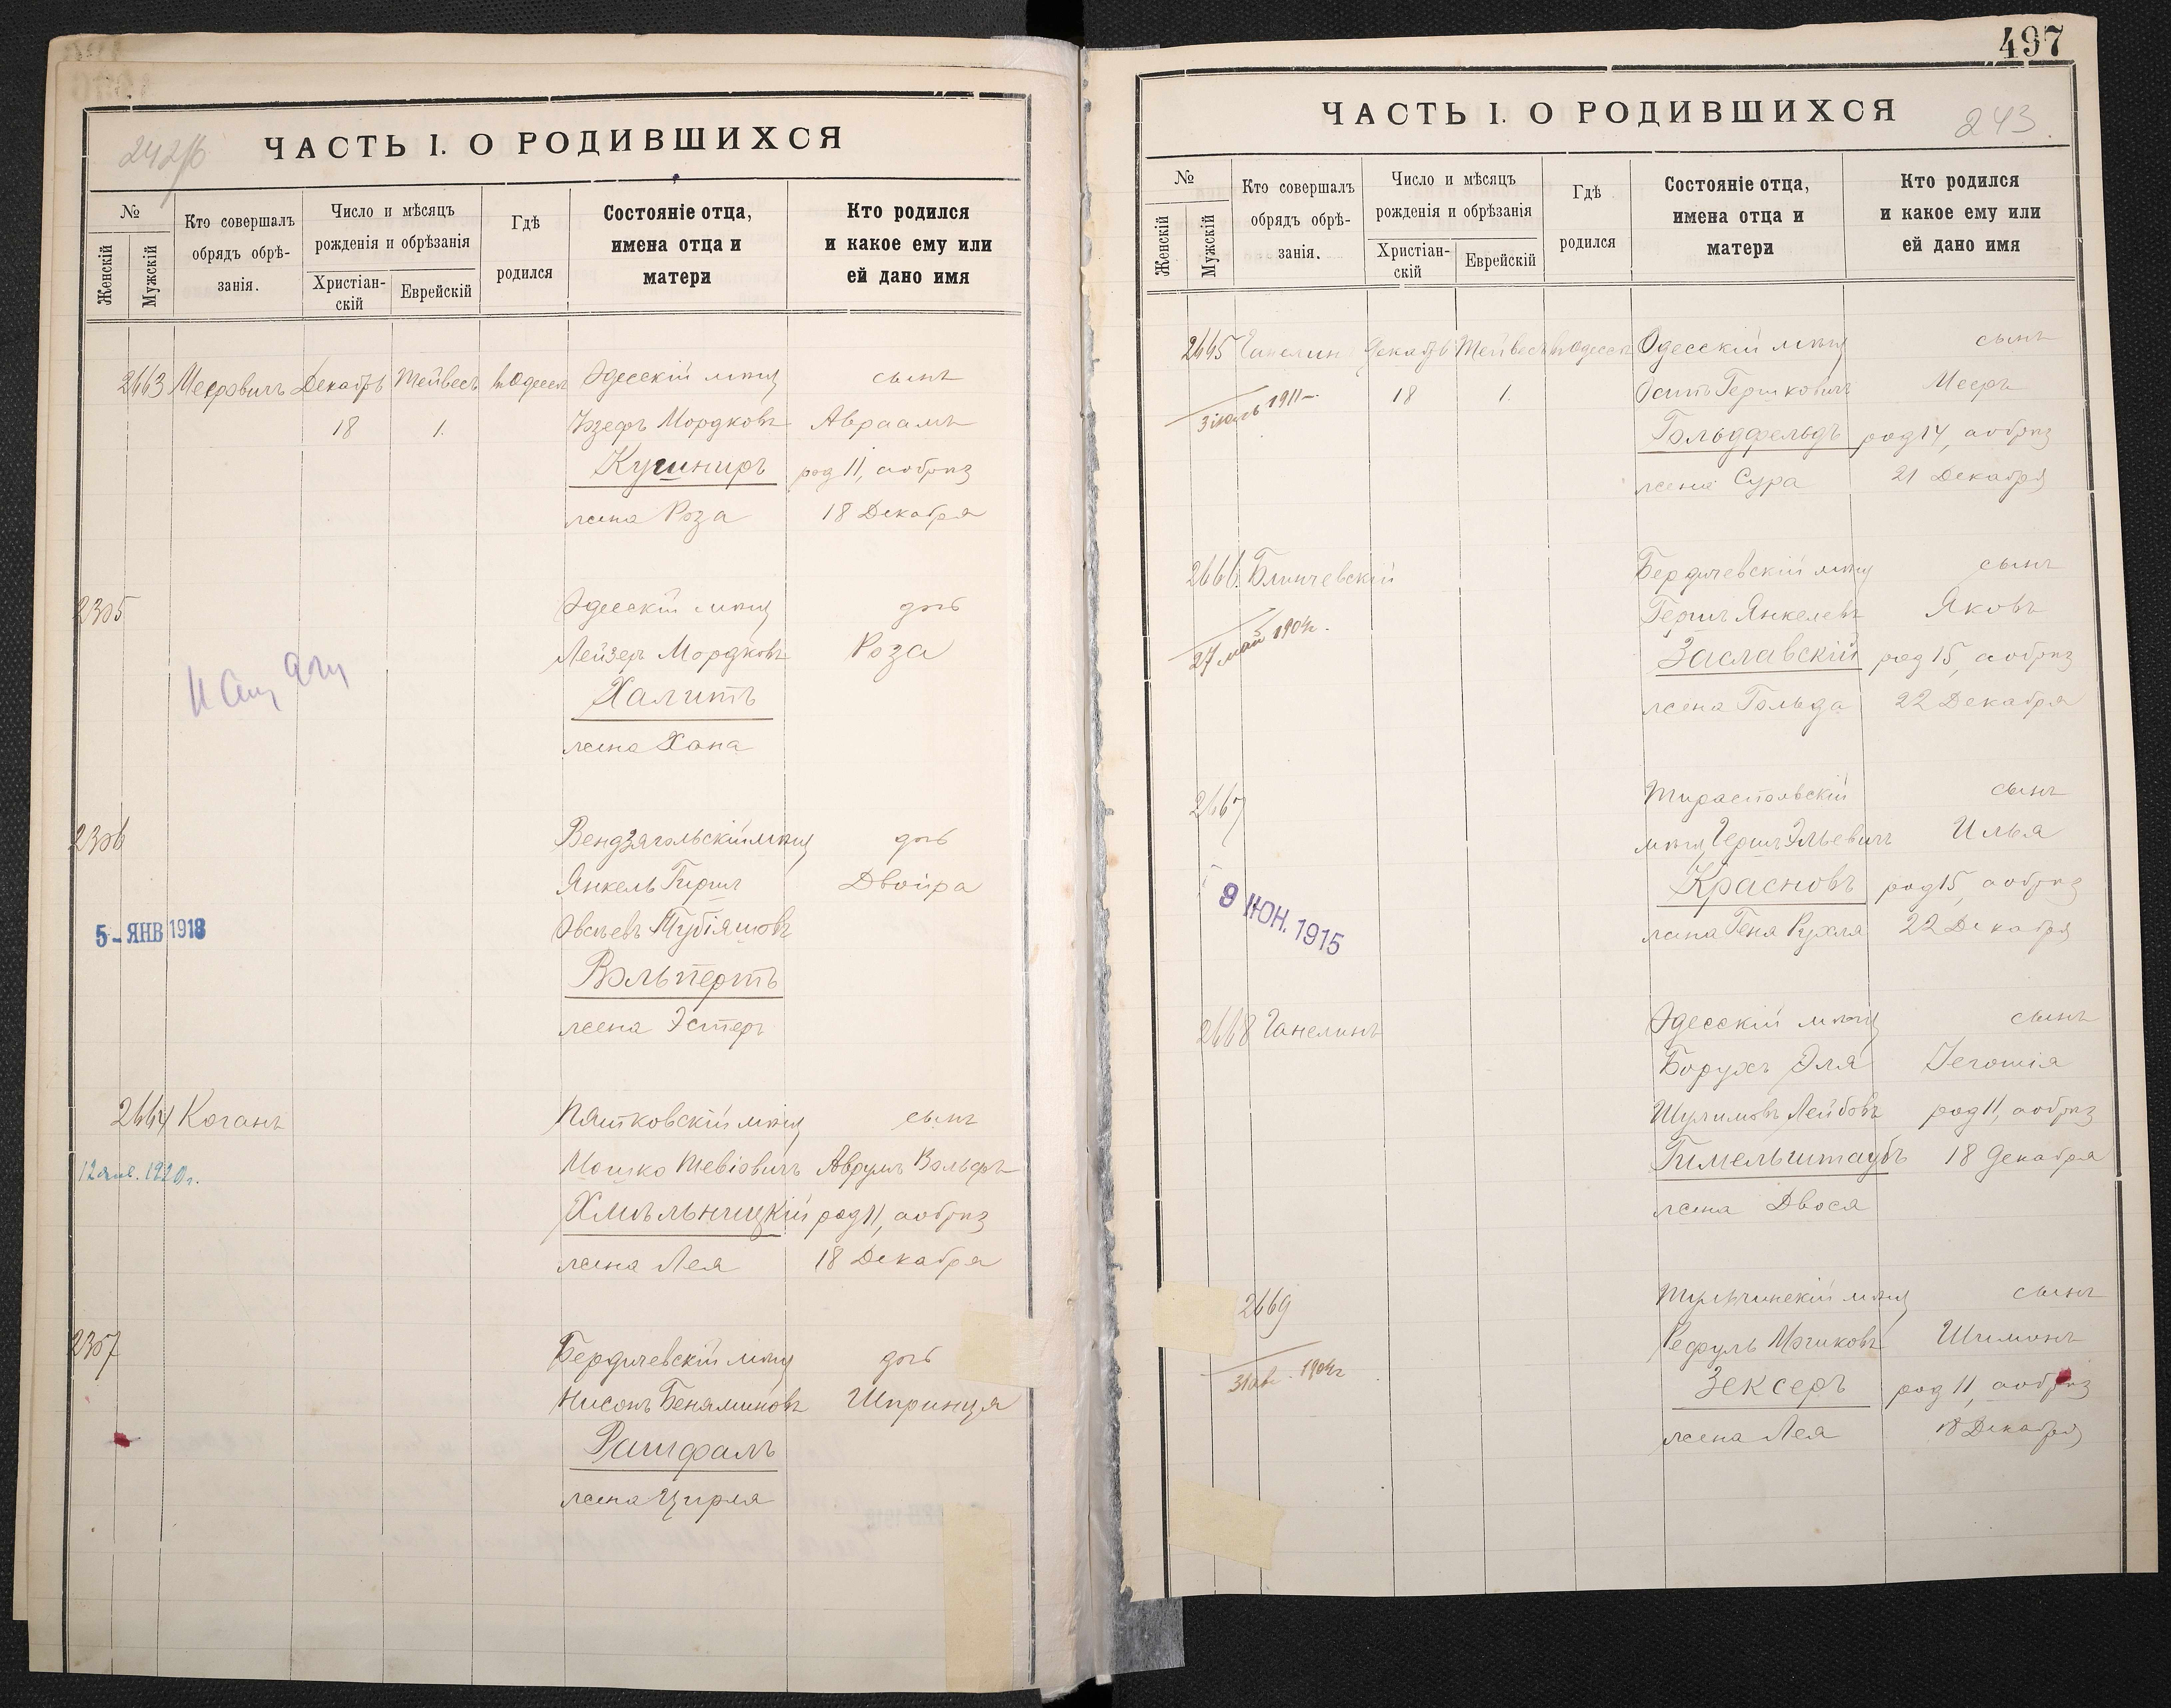 242/б
ЧАСТЬ I. О РОДИВШИХСЯ
№
Женскій
Мужскій
Кто совершалъ
обрядъ обрѣ-
занія.
Число и мѣсяцъ
рожденія и обрѣзанія
Христіан-
скій
Еврейскій
Гдѣ
родился
Состояніе отца,
имена отца и
матери
Кто родился
и какое ему или
ей дано имя
2663 Меєровичъ Декабрь Тейвесъ въ Одессѣ Одесскій мѣщ сынъ
18 1. Іозефъ Мордковъ Авраамъ
Кушниръ род 11, а обрѣз
жена Роза 18 Декабря
2305 Одесскій мѣщ дочь
Лейзеръ Мордковъ Роза
Халитъ
жена Хана
2306 Вендзягольскій мѣщ дочь
Янкель Гиршъ Двойра
Тубіяшовъ
5-ЯНВ 1918
Вольпертъ
жена Эстеръ
2664 Коганъ Пятковскій мѣщ сынъ
12 янв. 1920г.
Мошко Тевіовичъ Аврумъ Вольфъ
Хмѣльницкій род 11, а обрѣз
жена Лея 18 Декабря
2307 Бердичевскій мѣщ дочь
Нисонъ Беняминовъ Шпринця
Рашфалъ
жена Цирля
497
243.
ЧАСТЬ I. О РОДИВШИХСЯ
№
Женскій
Мужскій
Кто совершалъ
обрядъ обрѣ-
занія.
Число и мѣсяцъ
рожденія и обрѣзанія
Христіан-
скій
Еврейскій
Гдѣ
родился
Состояніе отца,
имена отца и
матери
Кто родился
и какое ему или
ей дано имя
2665 Ганелинъ Декабрь Тейвесъ въ Одессѣ Одесскій мѣщ сынъ
1911 18 1. Осипъ Гершковичъ Меєръ
Гольдфельдъ род 14, а обрѣз
жена Сура 21 Декабря
2666. Блинчевскій Бердичевскій мѣщ сынъ
27 май 1904г. Гершъ Янкелевъ Яковъ
Заславскій род 15, а обрѣз
жена Гольда 22 Декабря
2667 Тираспольскій сынъ
мѣщ Гершъ Эльевичъ Илья
9 ІЮН. 1915
Красновъ род 15, а обрѣз
жена Геня Рухля 22 Декабря
2668 Ганелинъ Одесскій мѣщ сынъ
Борухъ Эля
Шулимовъ Лейбовъ род 11, а обрѣз
Гимельштаубъ 18 Декабря
жена Двося
2669 Тульчинскій мѣщ сынъ
Рефуль Шимонъ
1904г
Зексеръ род 11, а обрѣз
жена Лея 18 Декабря